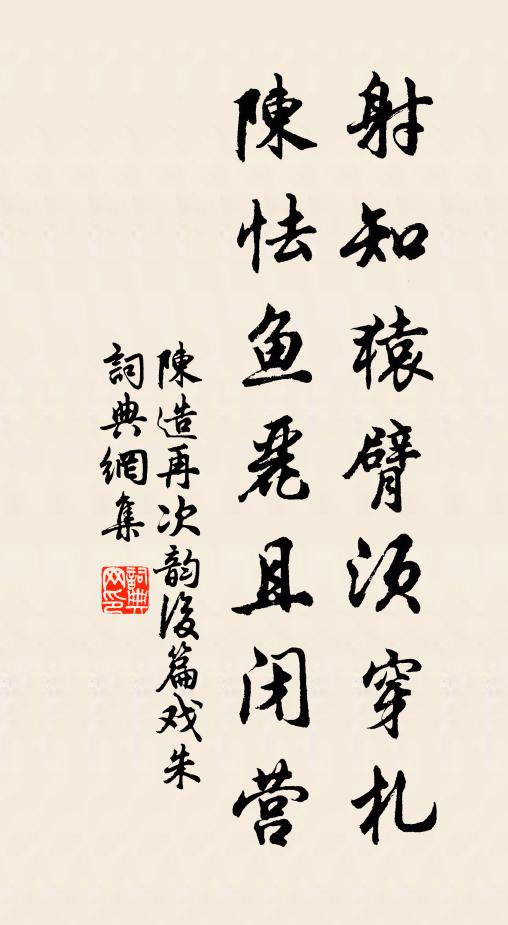 射知猿臂须穿札
陳怯鱼麗且闭营
陳造再次韵後篇戏朱
詞典網集
詞典网印